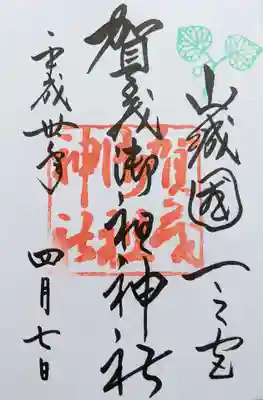 山城國一之宮
賀茂御祖神社
平成卅年四月七日
賀茂御祖神社